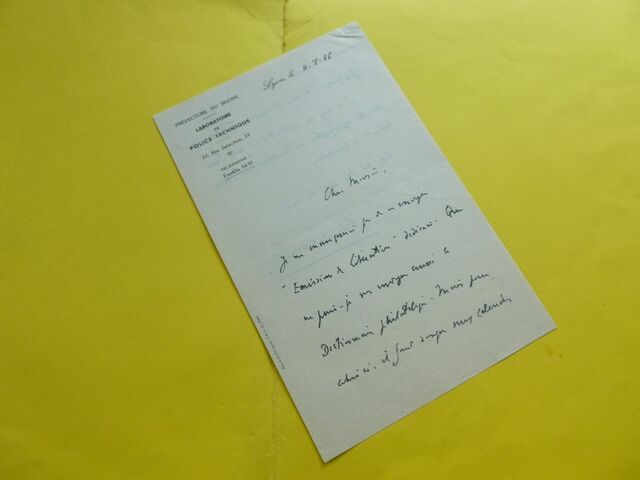 PRÉFECTURE DU RHÔNE
LABORATOIRE
DE
POLICE TECHNIQUE
35, Rue Saint-Jean, 35
TÉLÉPHONE
Franklin 54-95
Lyon le
Je ne manquerai de envoyer
"Emissions de Libération" dédicacé. Que
ne puis-je vous envoyer aussi le
Dictionnaire philatélique. Mais pour
celui-ci, il faut songer aux calendes